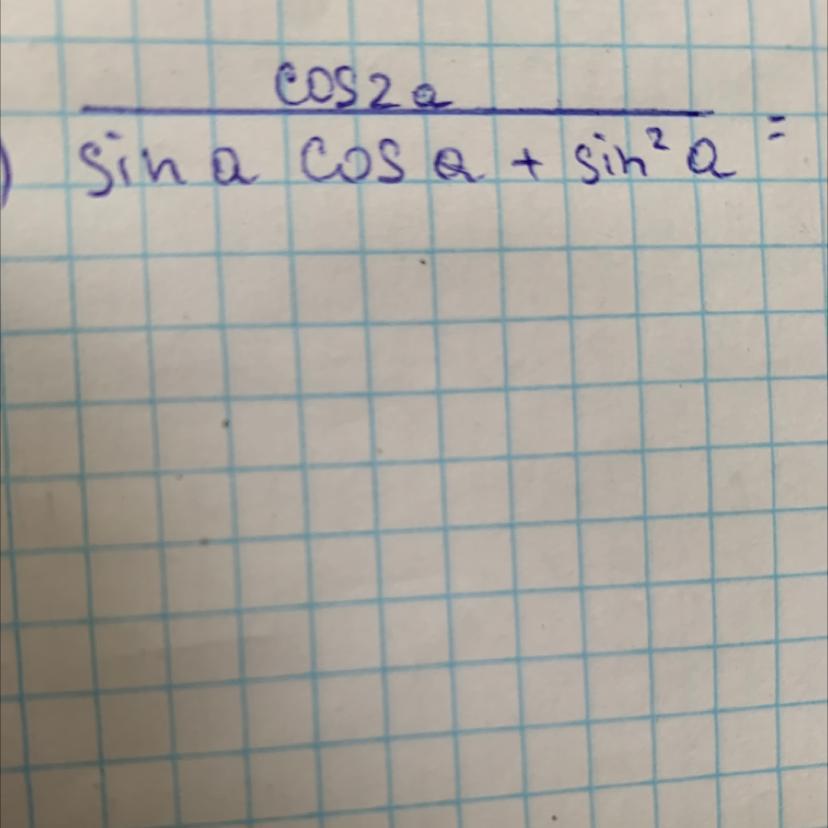 cos2a
) sin a cos a + sin² a =